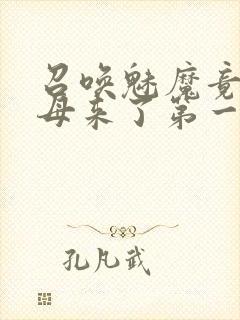 召唤魅魔竟
母来了第一
孔凡武